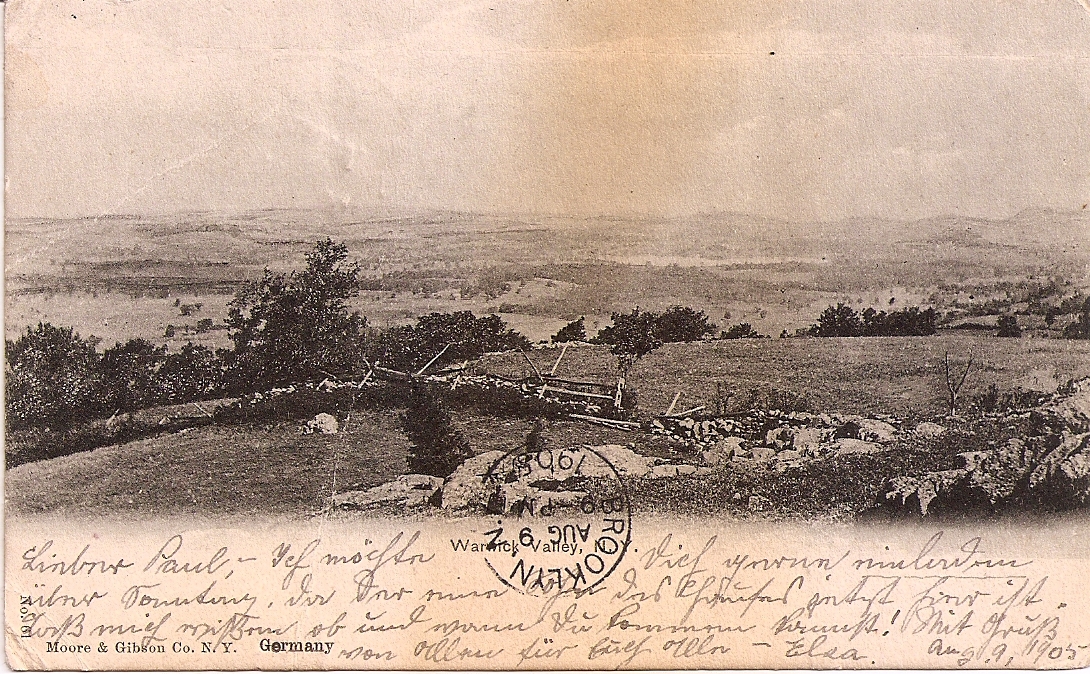 Warwick Valley, N. Y.
BROOKLYN N.Y.
AUG 9
8-PM
1905
Lieber Paul, – Ich möchte Dich gerne einladen
über Sonntag, da der des Hauses jetzt hier ist.
Laß mich wißen ob und wann Du kommen kannst! Mit Gruß
von Allen für Euch Alle – Elsa. Aug. 9, 1905
No 101
Moore & Gibson Co. N. Y. Germany